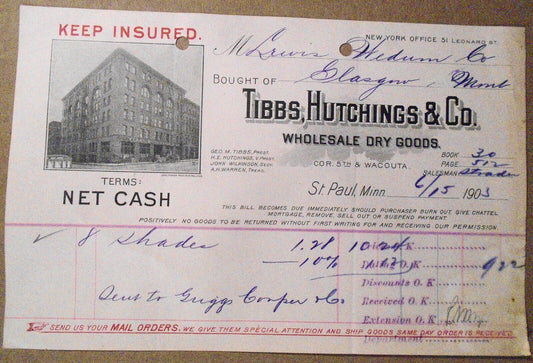 KEEP INSURED.
NEW YORK OFFICE 51 LEONARD ST.
M Lewis Wedum Co
BOUGHT OF Glasgow, Mont
TIBBS, HUTCHINGS & CO.
WHOLESALE DRY GOODS.
GEO. M. TIBBS, PREST.
H. E. HUTCHINGS, V. PREST.
JOHN WILKINSON, SECY.
A. H. WARREN, TREAS.
COR. 5TH & WACOUTA.
BOOK 30
PAGE 512
SALESMAN Strader
TERMS:
NET CASH
St Paul, Minn. 6/15 1903
THIS BILL BECOMES DUE IMMEDIATELY SHOULD PURCHASER BURN OUT, GIVE CHATTEL
MORTGAGE, REMOVE, SELL OUT OR SUSPEND PAYMENT.
POSITIVELY NO GOODS TO BE RETURNED WITHOUT FIRST WRITING FOR AND RECEIVING OUR PERMISSION.
8 Shades 1.28 10 24
—10% 9 22
Discounts O. K
Sent to Griggs Cooper & Co
Received O. K
Extension O. K
Department
SEND US YOUR MAIL ORDERS. WE GIVE THEM SPECIAL ATTENTION AND SHIP GOODS SAME DAY ORDER IS RECEIVED.